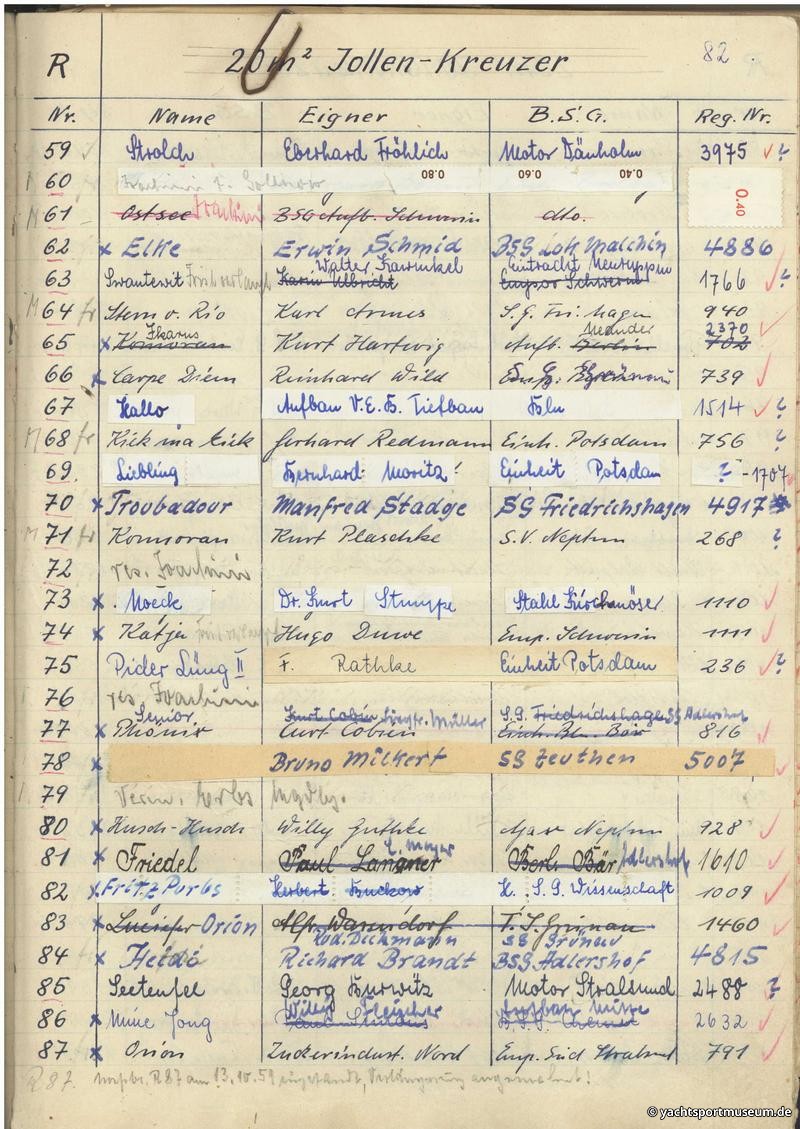 R 20 m² Jollen-Kreuzer 82
Nr. Name Eigner B.S.G. Reg. Nr.
59 Strolch Eberhard Fröhlich Motor Dänholm 3975 ?
60 0.80 0.60 0.40 0.40
61 Ostsee Joachim BSG Aufb. Schwerin dto.
62 x Elke Erwin Schmid BSG Lok Malchin 4886
Walter Eintracht Neuruppin
63 Swantewit Karin Ulbricht Empor Schwerin 1766 ?
M 64 fr Stern v. Rio Karl S.G. Fri. hagen 940
Ikarus 2370
65 x Kormoran Kurt Hartwig Aufb. Berlin 702
66 x Carpe Diem Reinhard Wild 739
67 Hallo Aufbau V.E.B. Tiefbau Bln 1514 ?
M 68 fr Kick ma kiek Gerhard Redmann Einh. Potsdam 756 ?
69 Liebling Bernhard Moritz Einheit Potsdam ? -1707
70 x Troubadour Manfred Stadge SG Friedrichshagen 4917
M 71 fr Kormoran Kurt Plaschke S.V. Neptun 268 ?
72 res. Joachim
73 x Moeck Dr. Kurt Stumpe Stahl Kirchmöser 1110
74 x Katja Hugo Duwe Emp. Schwerin 1111
75 Pider Lüng II F. Rathke Einheit Potsdam 236 ?
76 res. Joachim
Senior Kurt Cobin Siegfr. Müller S.G. Friedrichshagen SG Adlershof
77 x Phönix Curt Cobien Einh. Bln. Bär 816
78 x Bruno Milkert SG Zeuthen 5007
79
80 x Husch-Husch Willy Guthke Neptun 928
E. Meyer
81 x Friedel Paul Langner Berl. Bär Adlershof 1610
82 x Fritz Porbs Herbert Buckow H. S. G. Wissenschaft 1009
83 x Luzifer Orion Alfr. Warsndorf T.S. Grünau 1460
Dickmann SG Grünau
84 x Heido Richard Brandt BSG Adlershof 4815
85 Seeteufel Georg Hurwitz Motor Stralsund 2488 ?
Willy Fleischer Aufbau Mitte
86 x Mine Jong 2632
87 x Orion Zuckerindust. Nord Emp. Süd Stralsund 791
R 87. R 87 am 13.10.59
© yachtsportmuseum.de